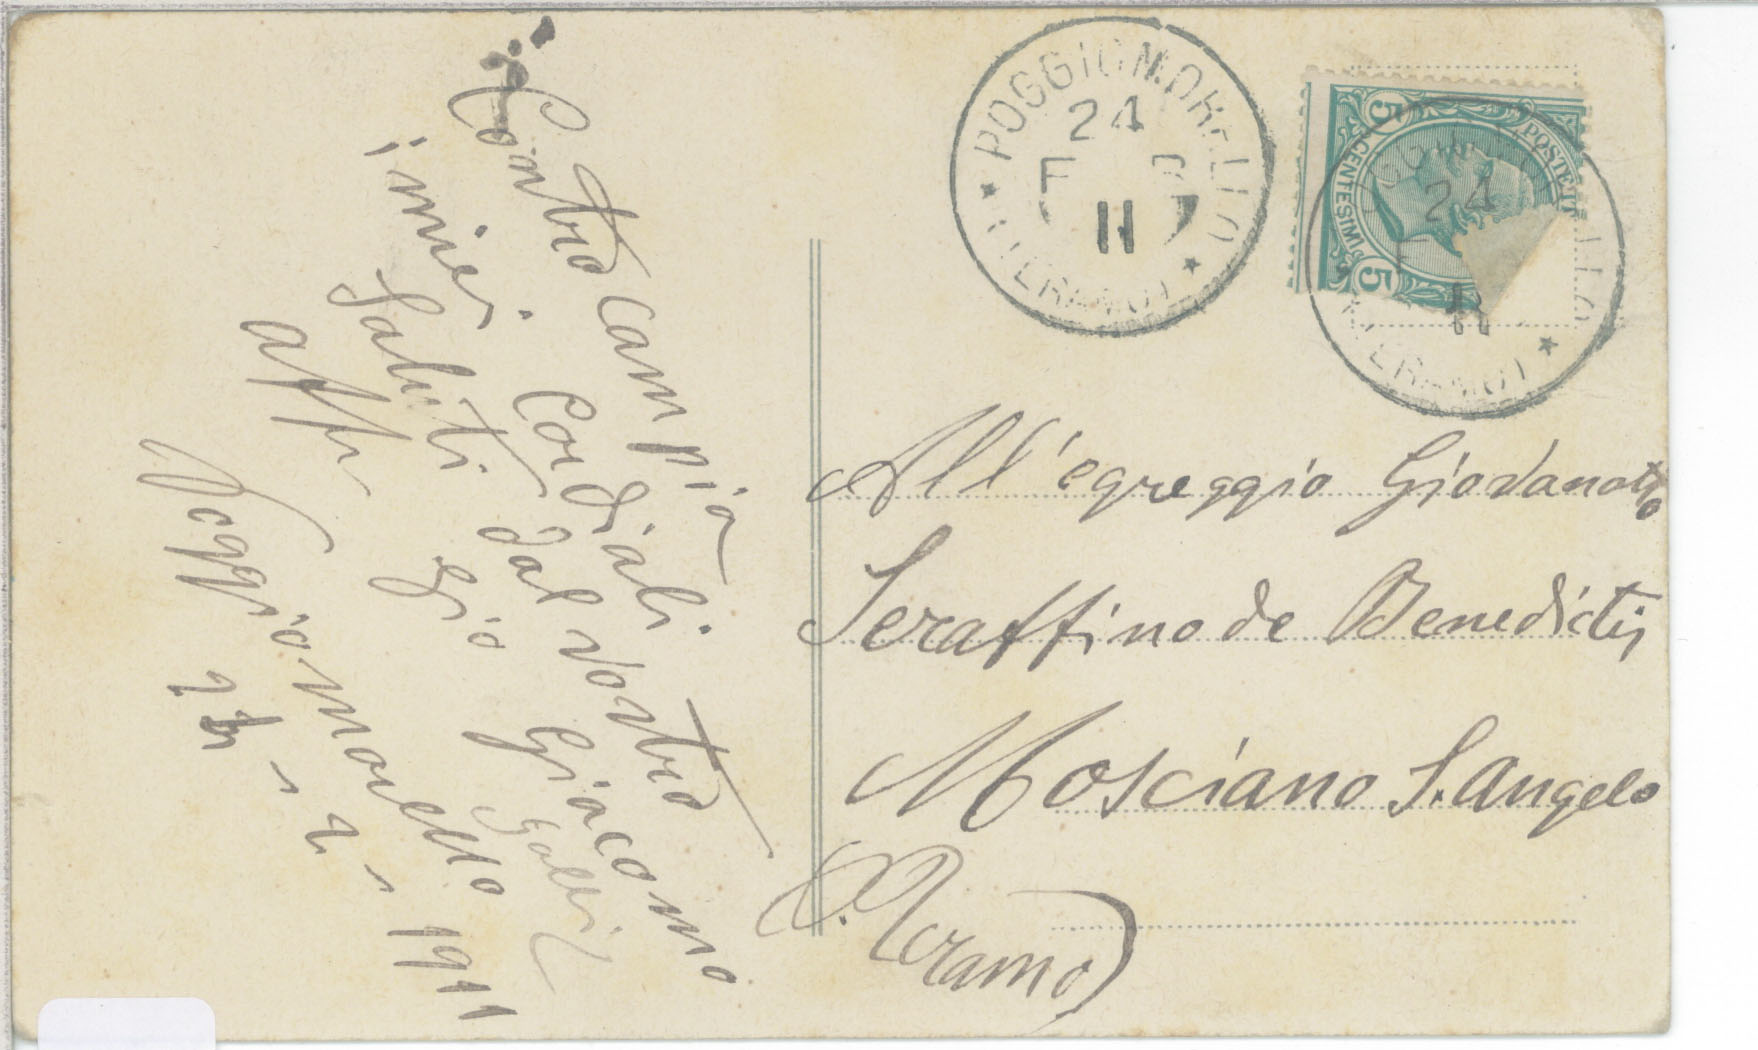 Contro Campia
Cordiali.
i miei Saluti dal vostro
aff Gio Giacomo
Galli
Poggio morello
24 - 2 - 1911
POGGIOMORELLO
24
F
11
(TERAMO)
POSTE IT
5 CENTESIMI 5
24
F
11
(TERAMO)
All'egreggio Giovanotto
Seraffino de Benedictis
Mosciano S. Angelo
(Teramo)